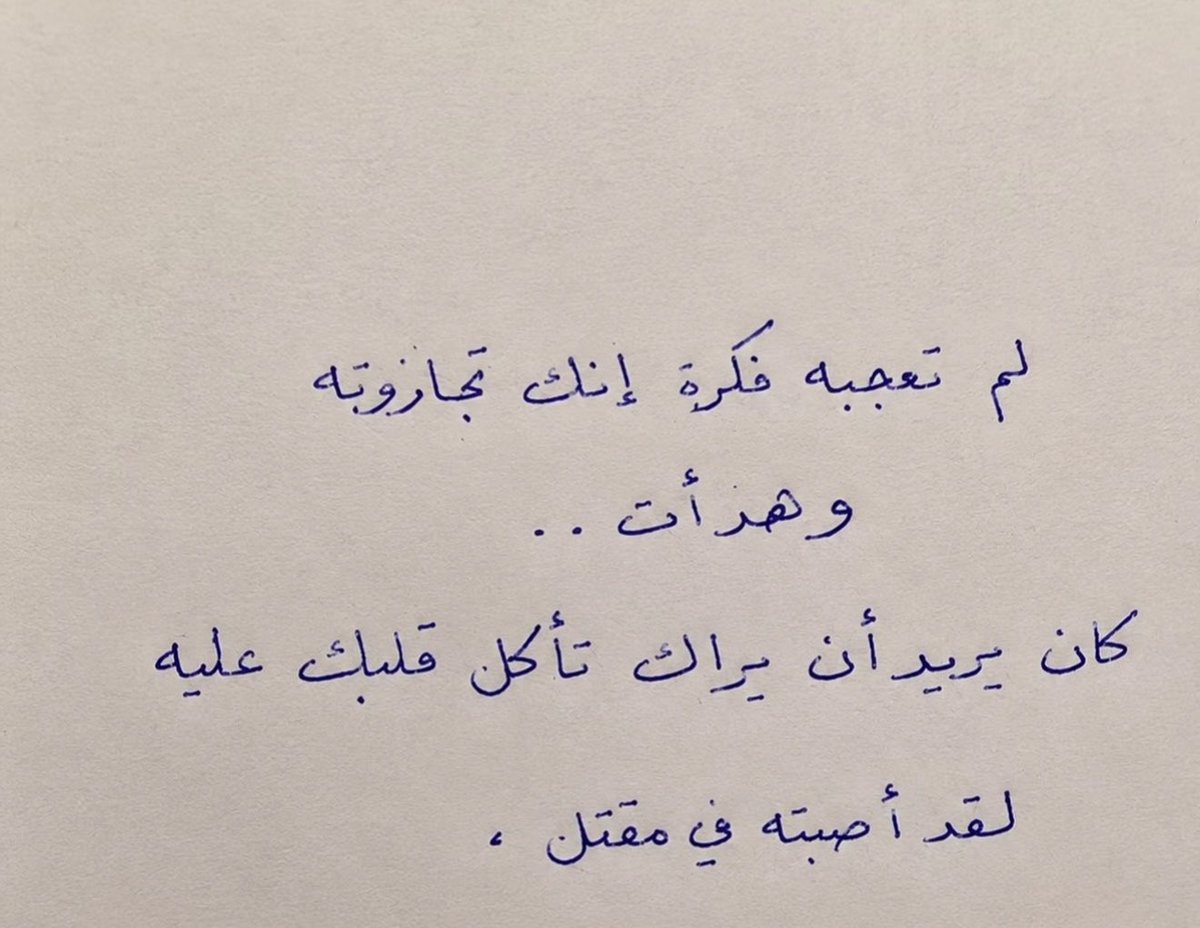 لم تعجبه فكرة إنك تجازوته
وهدأت ..
كان يريد أن يراك تأكل قلبك عليه
لقد أصبته في مقتل ،